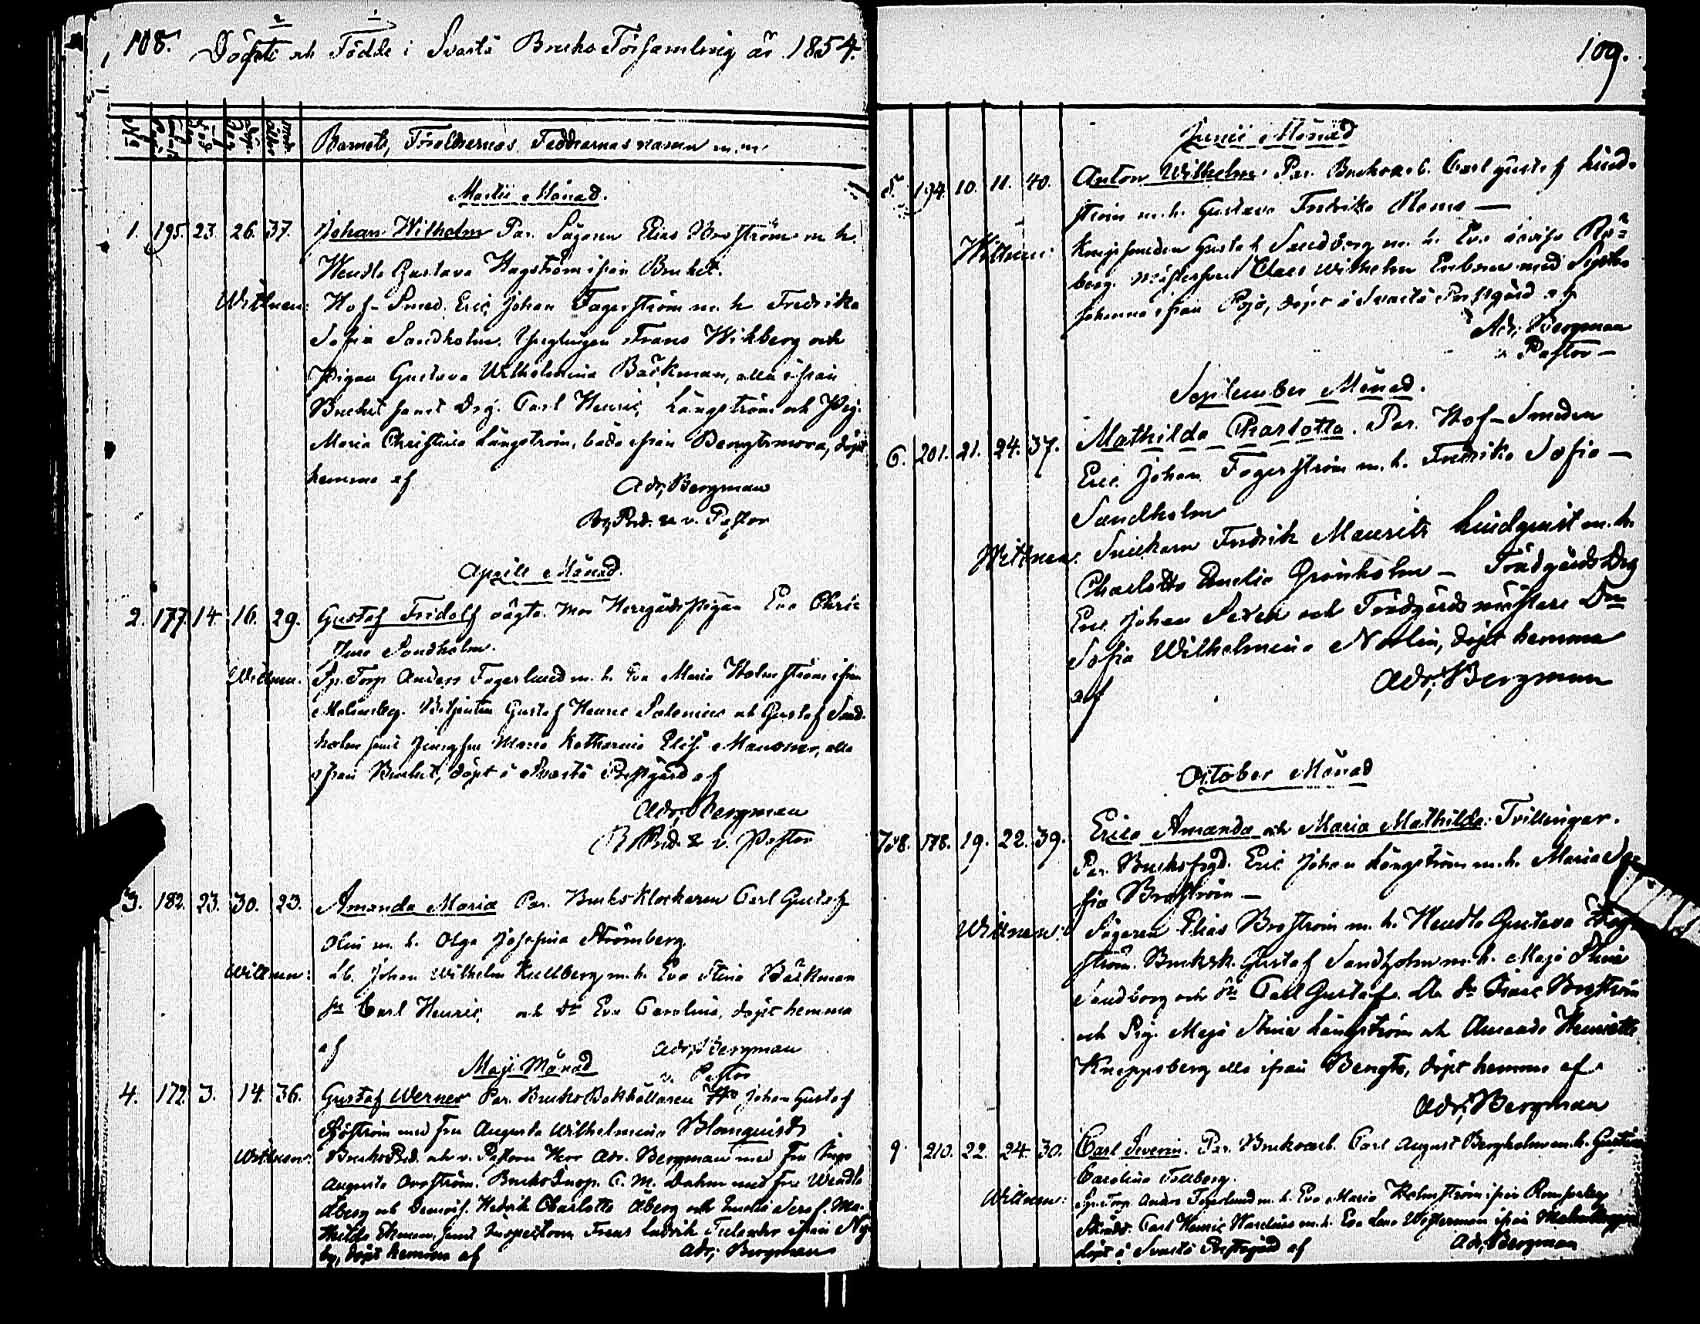 108. Döpte och Födde i Svartå Bruks Församling år 1854.
Barnets, Föräldrarnas, Faddrarnas namn m.m.
Martii Månad.
1. 195. 23. 26. 37. Johan Wilhelm Par. Sågaren Elias Broström m. h.
Wendla Gustava Hagström ifrån Bruket.
Wittnen: Hof-Smed. Eric Johan Fagerström m. h. Fredrika
Sofia Sandholm. Ynglingen Frans Wikberg och
Pigan Gustava Wilhelmina Bäckman, alla ifrån
Bruket samt Drg. Carl Henric Långström och Pig.
Maria Christina Långström, båda ifrån Bengtsmora, döpt
hemma af Adr. Bergman
Br. Pred. & v. Pastor
Aprill Månad.
2. 177. 14. 16. 29. Gustaf Fridolf oägta. Mor Herrgårds pigan Eva Chris-
tina Sandholm.
Wittnen. Sp. Torp. Anders Fagerlund m. h. Eva Maria Holmström ifrån
Malmsberg. Betjenten Gustaf Henric och Gustaf Sand-
holm samt Jungfru Maria Katharina Elis. alla
ifrån Bruket, döpt i Svartå Prestgård af
Adr. Bergman
B. Pred. & v. Pastor
3. 182. 23. 30. 23. Amanda Maria Par. Bruks Klockaren Carl Gustaf
Olin m. h. Olga Josefina Strömberg
Wittnen: Johan Wilhelm Kullberg m. h. Eva Stina Bäckman
Carl Henric och Eva Carolina, döpt hemma
af Adr. Bergman
v. Pastor
Maji Månad
4. 172. 3. 14. 36. Gustaf Werner Par. Bruks Bokhållaren Johan Gustaf
Sjöström med fru Augusta Wilhelmina Blomquist
Wittnen: Bruks Pred. och v. Pastorn Herr Adr. Bergman med Fru Inga
Augusta Broström. Bruks Insp. C. M. Dahm med fru Wendla
Åberg och Demois. Hedvik Charlotte Åberg och
samt Inspectorn Frans Ludvik ifrån Ny-
by, döpt hemma af Adr. Bergman
109.
Junii Månad
5. 194. 10. 11. 40. Anton Wilhelm Par. Bruksarb. Carl Gustaf Lind-
ström m. h. Gustava Fredrika
Wittnen: Knipsmeden Gustaf Sandberg m. h. Eva Lovisa Rå-
berg. Claes Wilhelm med
Johanna ifrån Pojo, döpt i Svartå Prestgård af
Adr. Bergman
v. Pastor
September Månad.
6. 201. 21. 24. 37. Mathilda Charlotta. Par. Hof-Smeden
Eric Johan Fagerström m. h. Fredrika Sofia
Sandholm
Wittnen. Snickarn Fredrik Maurits Lindqvist m. h.
Charlotta Amelia Grönholm Trädgårds Drg
Eric Johan och Trädgårdsmästare
Sofia Wilhelmina Norlin, döpt hemma
af Adr. Bergman
October Månad
7 & 8. 178. 19. 22. 39. Erica Amanda och Maria Mathilda. Tvillingar.
Par. Eric Johan Långström m. h. Maria So-
fia Broström
Wittnen: Sågaren Elias Broström m. h. Wendla Gustava Hag-
ström. Gustaf Sandholm m. h. Maja Stina
Sandborg och Carl Gustaf Broström
och Pig. Maja Stina Långström och Amanda Henrietta
Knoppsberg alla ifrån Bengts, döpt hemma af
Adr. Bergman
9. 210. 22. 24. 30. Carl Severin. Par. Bruksarb. Carl August Bergholm m. h. Gustava
Carolina
Wittnen: Sp. Torp. Anders Fagerlund m. h. Eva Maria Holmström ifrån
Carl Henric m. h. Eva Westerman ifrån
döpt i Svartå Prestgård af Adr. Bergman